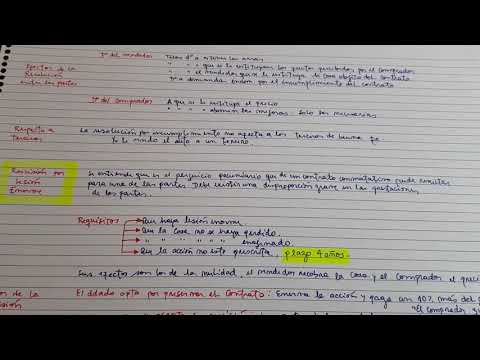 Dº del vendedor
Tiene dº a retener las arras
" " " que se le restituyan los frutos percibidos por el comprador
" " " el vendedor que se le restituya la cosa objeto del contrato
Tº a demandar indem. por el incumplimiento del contrato
Efectos de la
Resolución
entre las partes
Dº del comprador
A que se le restituya el precio
" " " abonen las mejoras. Solo las necesarias
Respecto a
Terceros
La resolución por incumplimiento no afecta a los terceros de buena fe
Rescisión por
lesión
Enorme
Se entiende que es el perjuicio pecuniario que de un contrato conmutativo puede resultar
para una de las partes. Debe existir una disproporción grave en las prestaciones
de las partes.
Requisitos
Que haya lesión enorme.
Que la cosa no se haya perdido.
" " " " " enajenado.
Que la acción no esté prescrita, plazo 4 años.
Sus efectos son los de la nulidad, el vendedor recobra la cosa y el comprador el preci
de la
sión
El ddado opta por preservar el contrato: Enerva la acción y paga un 10% más del
"El comprador